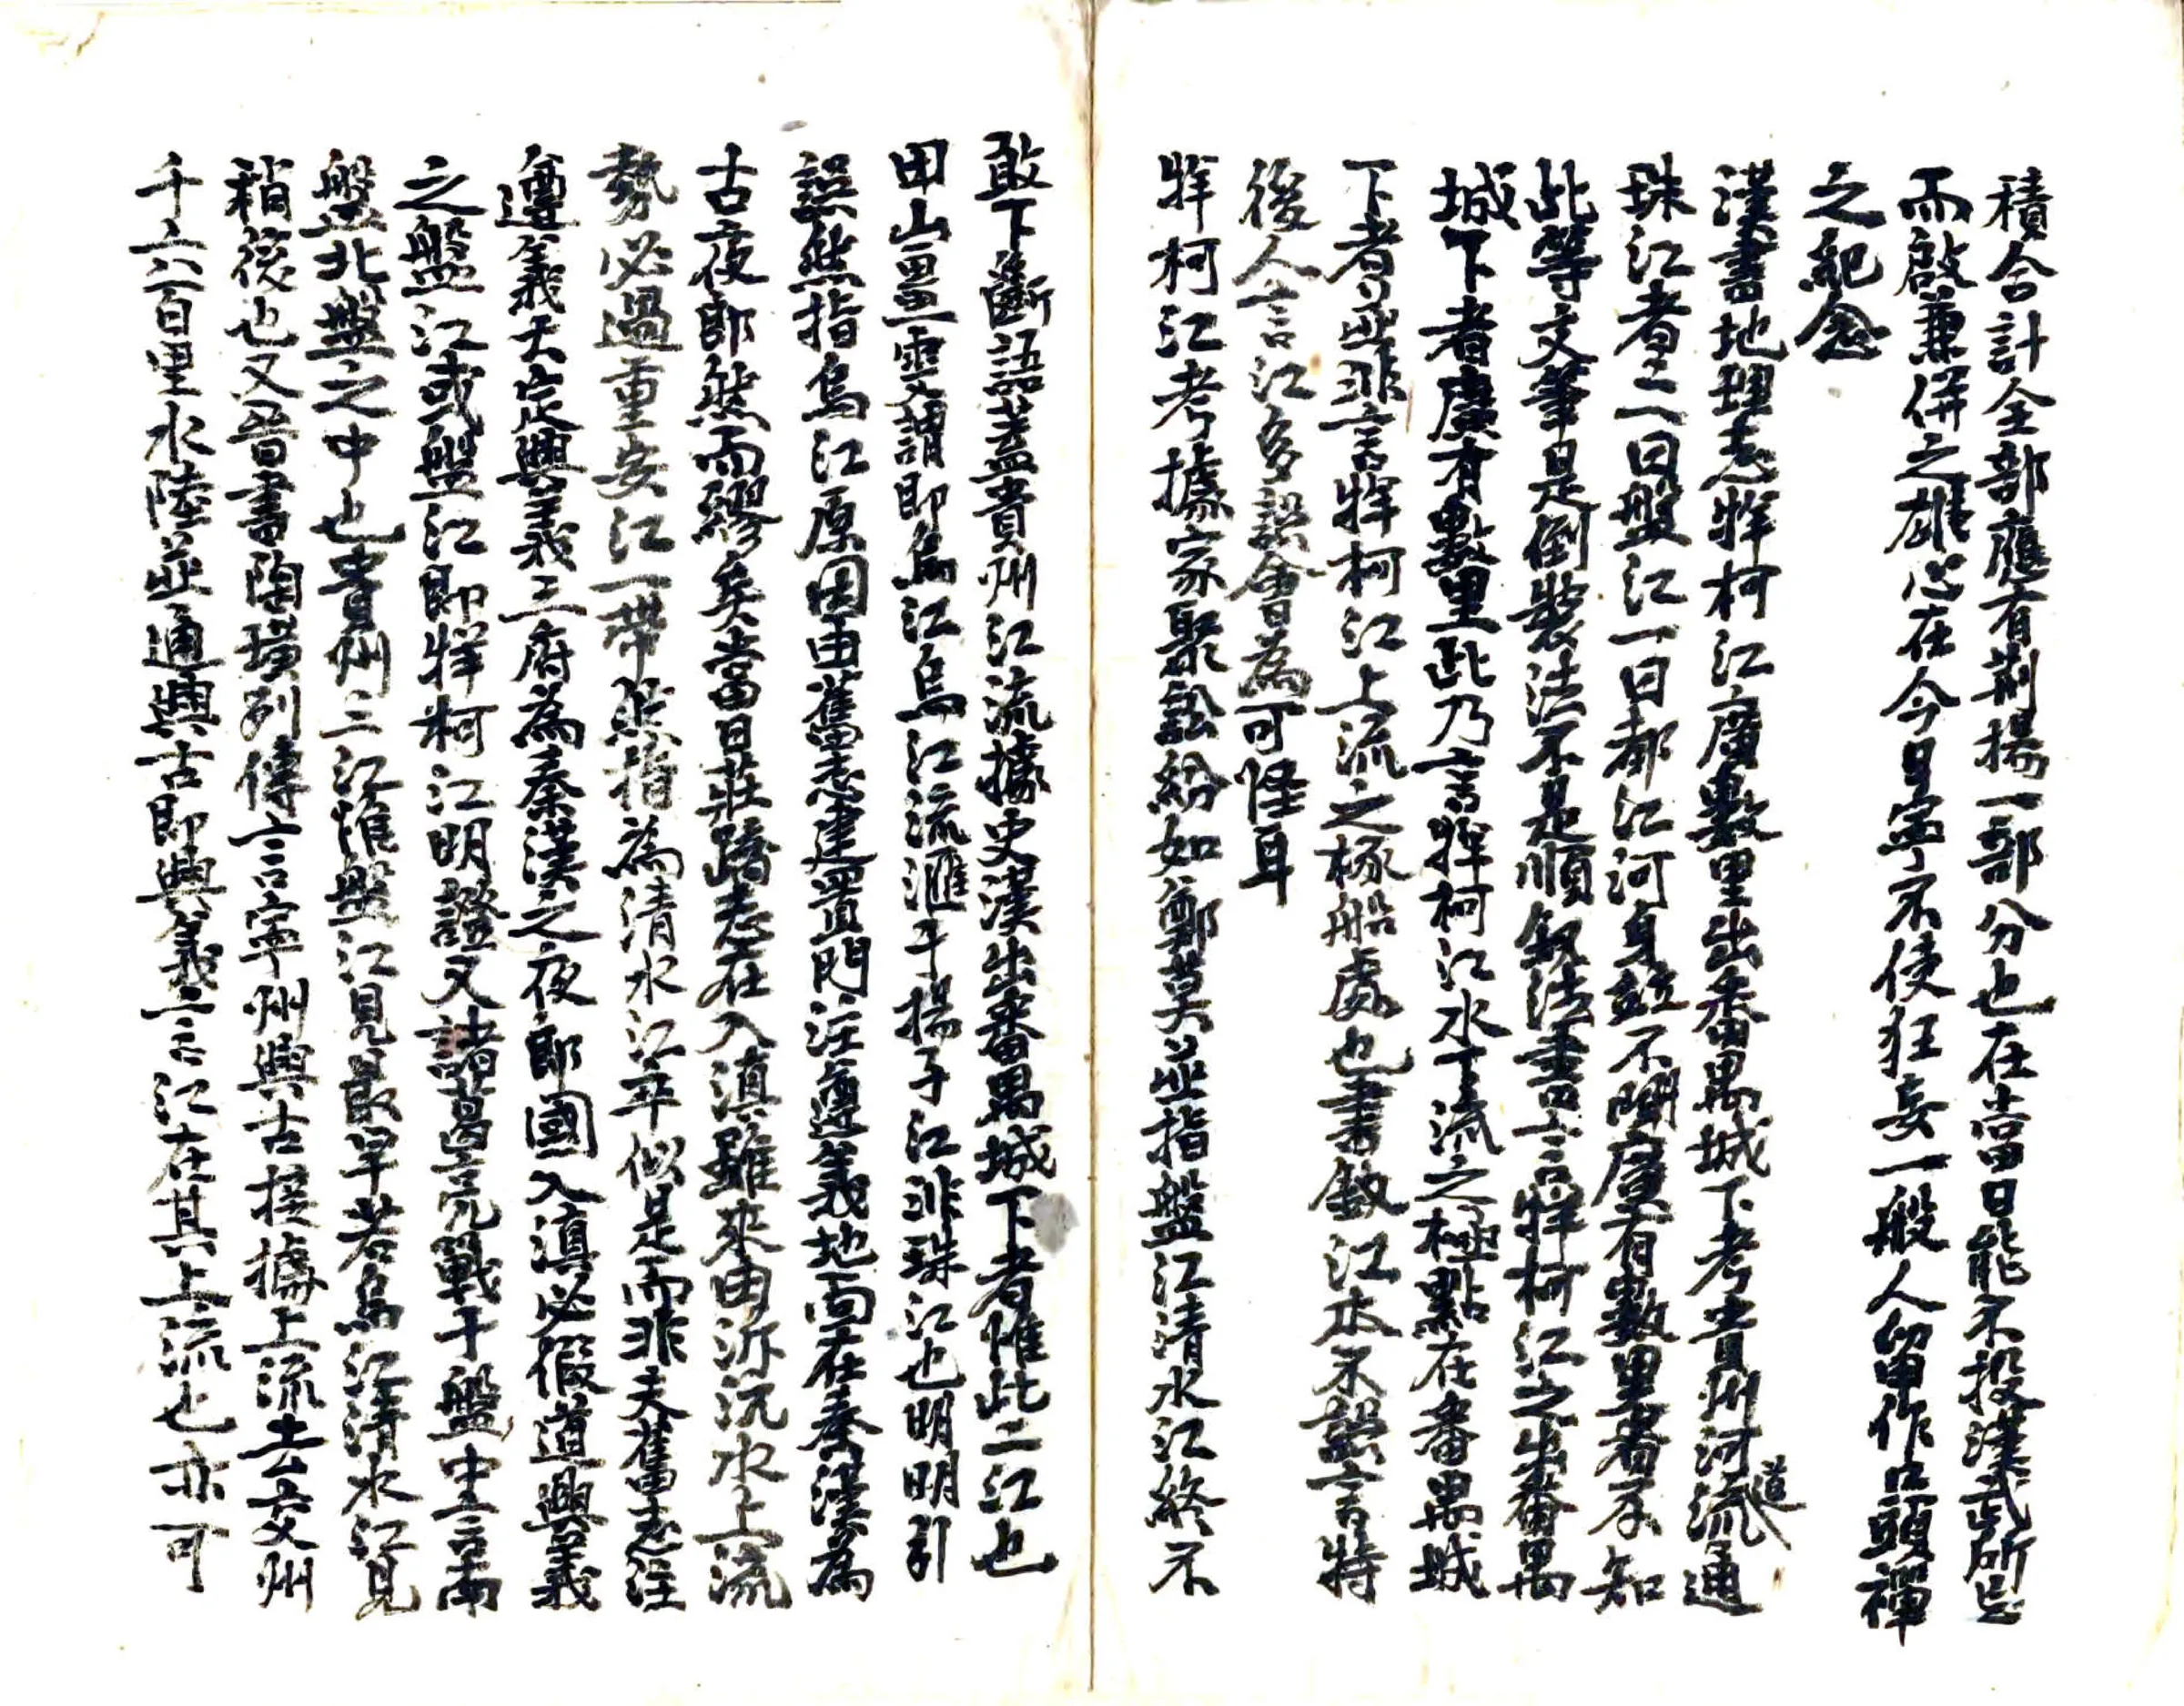 積合計全部應有荆揚一部分也在當日能不投漢武所忌
而啟兼併之雄心在今日寧不使狂妄一般人留作口頭禪
之紀念
漢書地理志牂柯江廣數里出番禺城下考貴州河道流通
珠江者二一曰盤江一曰都江河身並不闊廣有數里者不知
此等文筆是倒裝法不是順敘法書言牂柯江之出番禺
城下者廣有數里此乃言牂柯江水下流之極點在番禺城
下者並非言牂柯江上流之椓船處也書敘江本不誤言特
後人言江多誤會為可怪耳
牂柯江考據家聚訟紛如鄭莫並指盤江清水江終不
敢下斷語蓋貴州江流據史漢出番禺城下者惟此二江也
田山薑雯謂即烏江烏江流滙于揚子江非珠江也明明引
誤然指烏江原因由舊志建置門注遵義地面在秦漢為
古夜郎然而繆矣當日莊蹻志在入滇雖來由泝沅水上流
勢必過重安江一帶然指為清水江平似是而非夫舊志注
遵義大定興義三府為秦漢之夜郎國入滇必假道興義
之盤江或盤江即牂柯江明證又諸葛亮戰于盤中言南
盤北盤之中也貴州三江惟盤江見最早若烏江清水江見
稍後也又晉書陶璜列傳言寧州興古接據上流去交州
千六百里水陸並通興古即興義言江在其上流也亦可